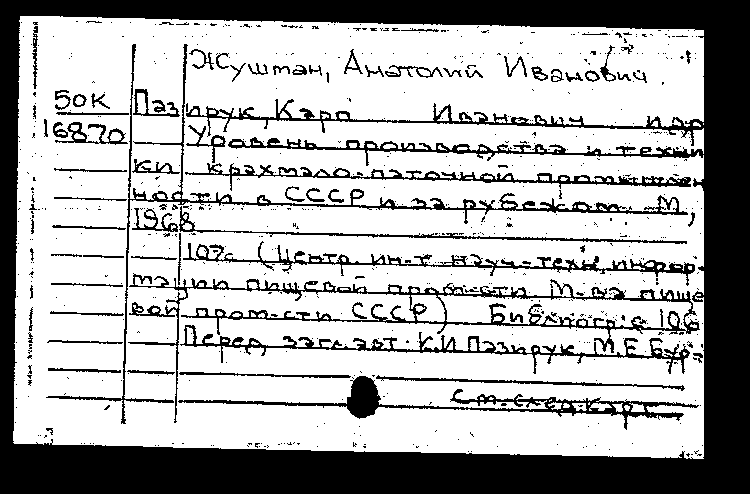 Жуштан, Анатолий Иванович
50К Пазирук, Каро Иванович и др
16870 Уровень производства и техни
ки крахмало-паточной промышлен
ности в СССР и за рубежом. М,
1968
107с. (Центр. ин-т науч-техн, инфор-
мации пищевой пром-сти М-ва пище
вой пром-сти СССР) Библиогр: с 106
Перед загл. авт: К.И Пазирук, М.Е Бур-
См. след. карт